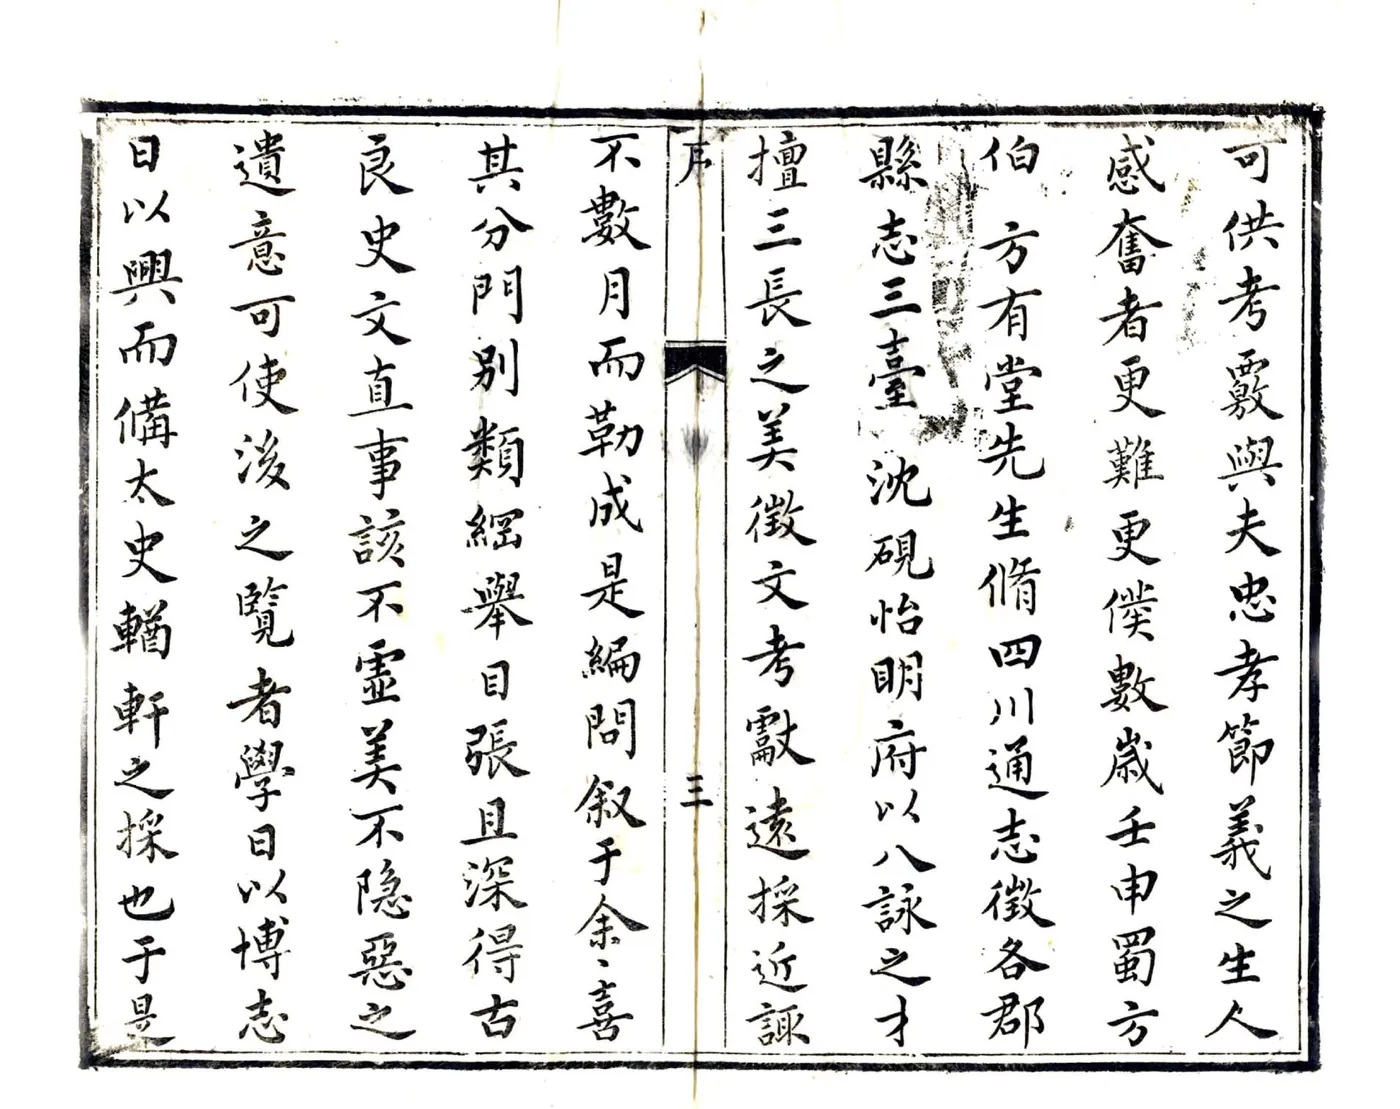 可供考覈與夫忠孝節義之生人
感奮者更難更僕數歲壬申蜀方
伯方有堂先生脩四川通志徵各郡
縣志三臺沈硯怡明府以八詠之才
擅三長之美徵文考獻遠採近諏
序
三
不數月而勒成是編問叙于余〻喜
其分門別類綱舉目張且深得古
良史文直事該不虛美不隐惡之
遺意可使後之覽者學日以博志
日以興而備太史輶軒之採也于是